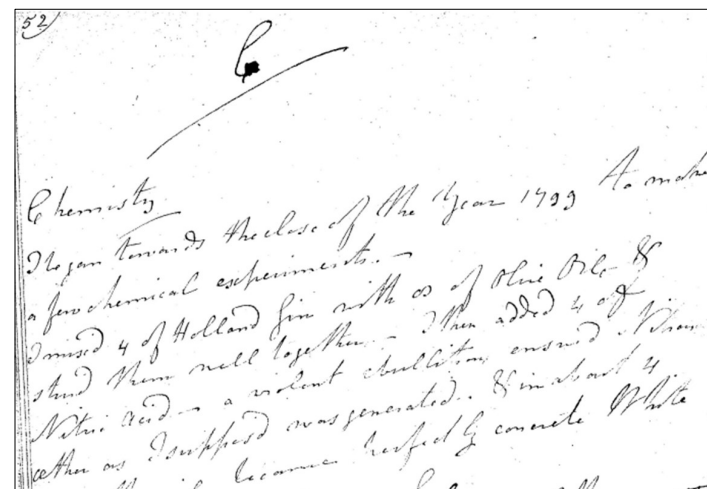 52
C
Chemistry
I began towards the close of the Year 1799 to make
a few chemical experiments. –
I mixed 4 of Holland Gin with of Olive Oil – &
them well together – I then added 4 of
Nitric acid – a violent ebullition ensued Nitrous
æther as I suppos'd was generated. & in about 4
became perfectly concrete White